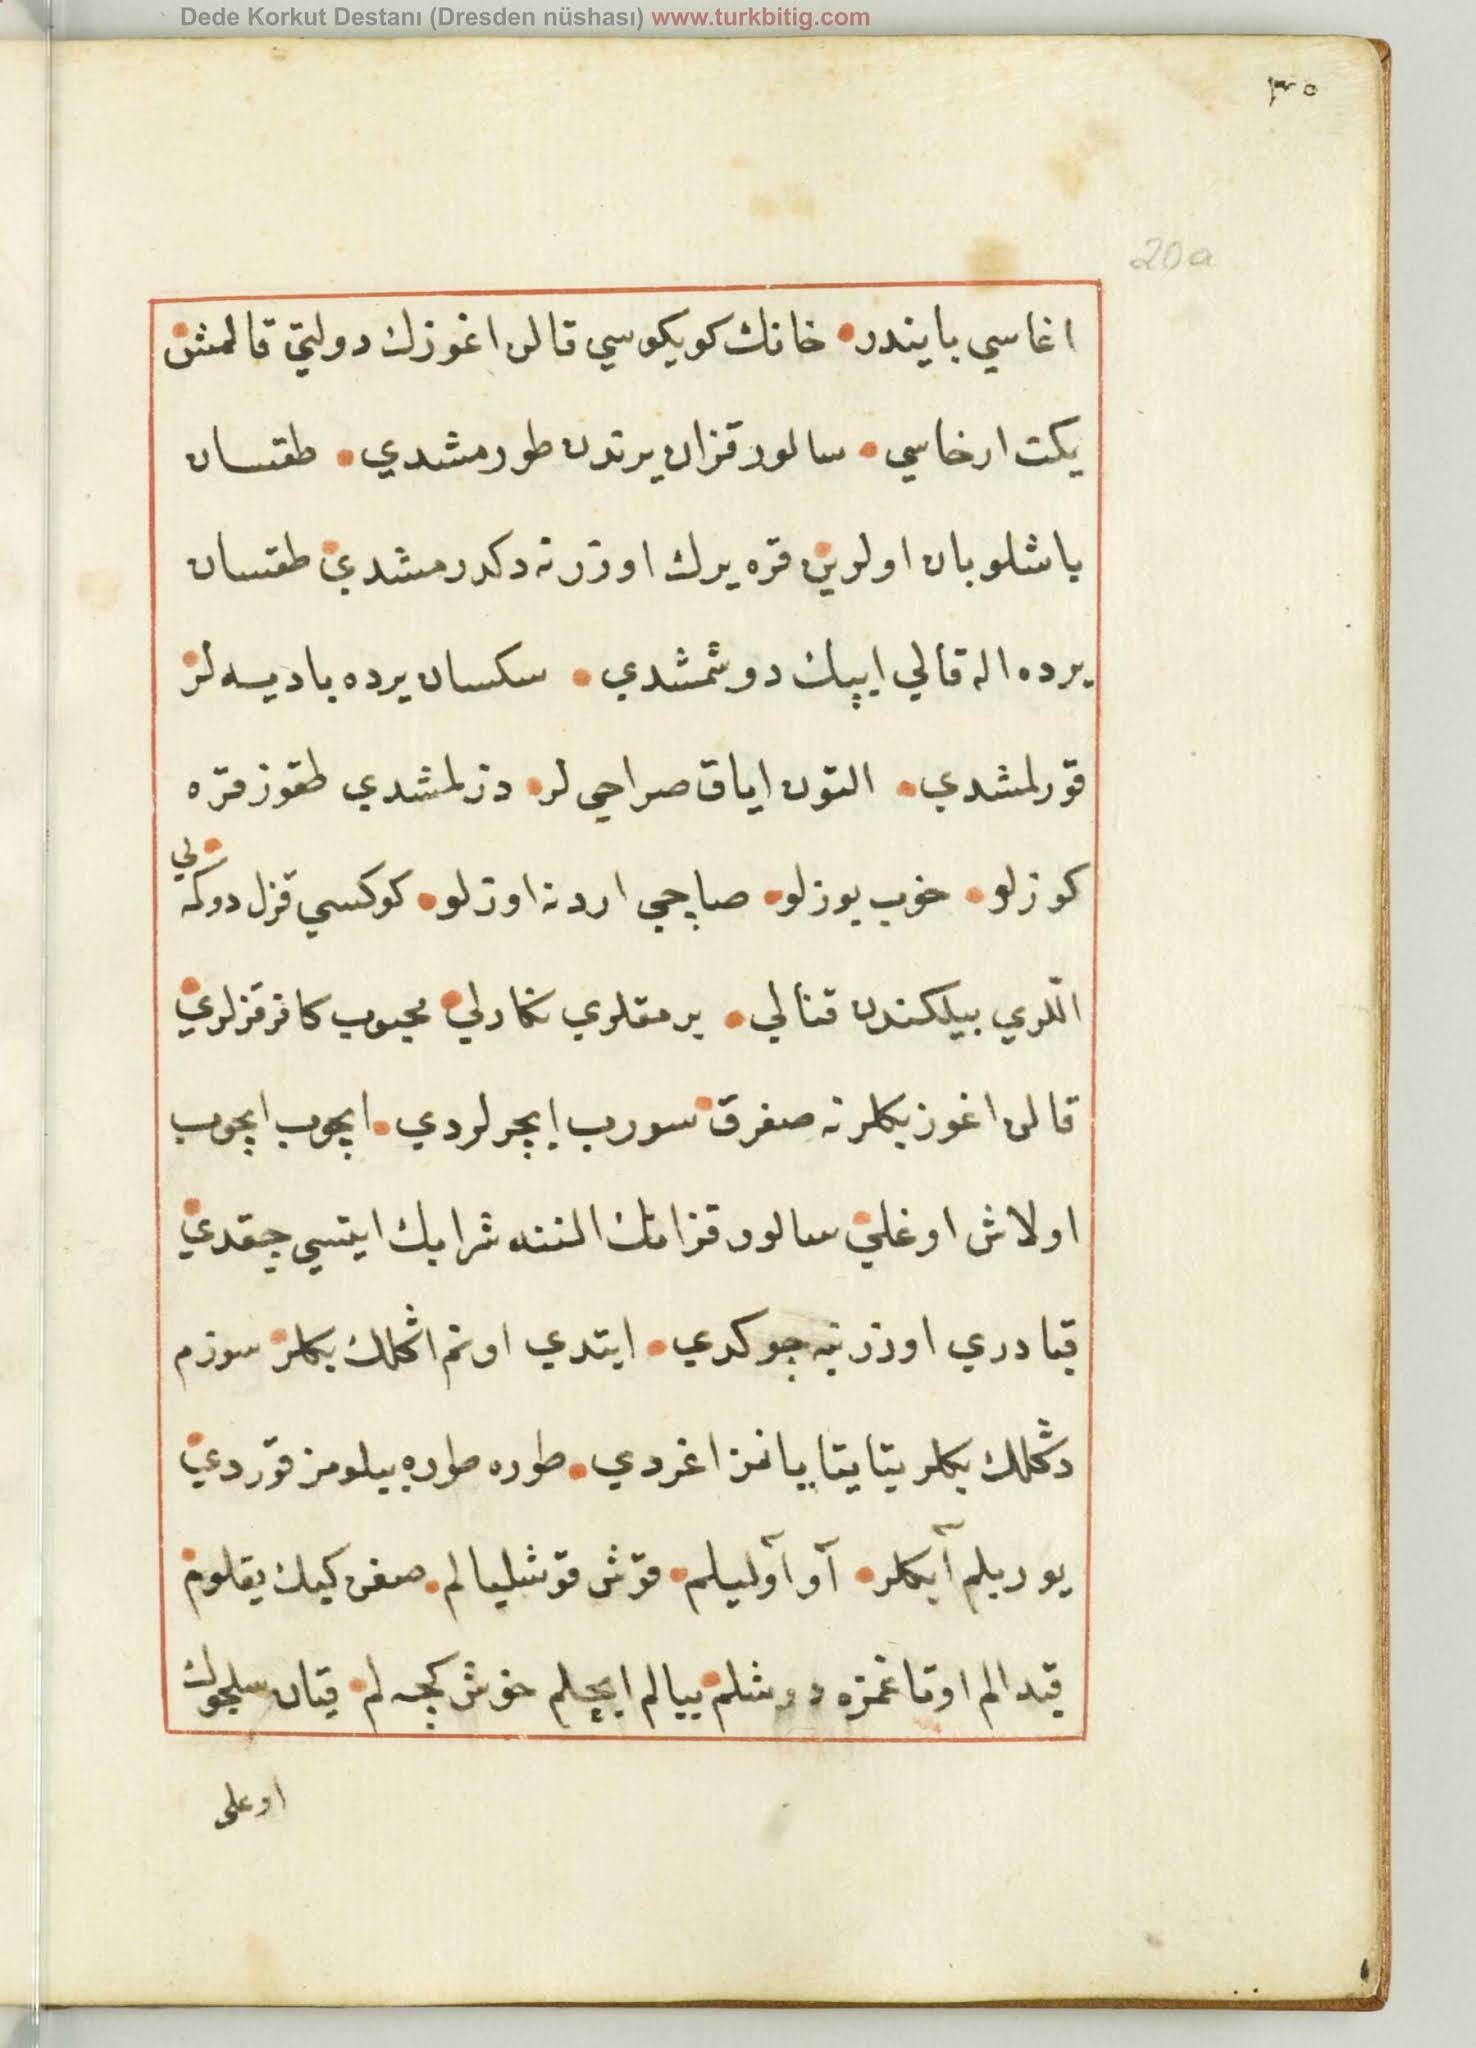 Dede Korkut Destanı (Dresden nüshası) www.turkbitig.com
٣٥
20a
اغاسي بايندر خانك كويكوسي قالن اغوزك دولتي قالمش
يكت ارخاسي سالور قزان يرندن طورمشدي طقسان
باشلو بان اولرين قره يرك اوزرنه دكدرمشدي طقسان
يرده اله قالي ايپك دوشمشدي سكسان يرده باديه لر
قورلمشدي التون اياق صراحي لر دزلمشدي طقوز قره
كوزلو خوب يوزلو صاچي اردنه اوزلو كوكسي قزل دوكمه لي
اللري بيلكندن قنالي برمقلري نكارلي محبوب كافر قزلري
قالن اغوز بكلرنه صغرق سورب ايچرلردي ايچوب ايچوب
اولاش اوغلي سالور قزانك النه شرابك ايتسي چقدي
قبا دزي اوزرنيه چوكدي ايتدي اونم اڭلك بكلر سوزم
دڭلك بكلر يتا يتا يانمز اغردي طوره طوره بيلومز قوردي
يوريلم آ بكلر آو آوليلم قوش قوشليالم صغن كيك يقلوم
قيدالم اوتاغمزه دوشلم ييالم ايچلم خوش كچه لم قيان سلجوك
اوغلى